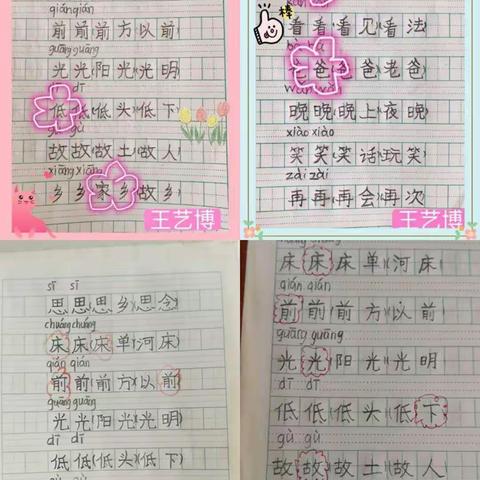 qián qián
前前(前方)(以前)
guāng guāng
光光(阳光)(光明)
dī
低低(低头)(低下)
gù
故故(故土)(故人)
xiāng xiāng
乡乡(家乡)(故乡)
王艺博
棒
看看(看见)(看法)
bà
爸爸(爸爸)(老爸)
wǎn wǎn
晚晚(晚上)(夜晚)
xiào xiào
笑笑(笑话)(玩笑)
zài zài
再再(再会)(再次)
王艺博
sī sī
思思(思乡)(思念)
chuáng chuáng
床床(床单)(河床)
qián qián
前前(前方)(以前)
guāng guāng
光光(阳光)(光明)
dī dī
低低(低头)(低下)
gù gù
床床(床单)(河床)
qián qián
前前(前方)(以前)
guāng guāng
光光(阳光)(光明)
dī dī
低低(低头)(低下)
gù gù
故故(故土)(故人)